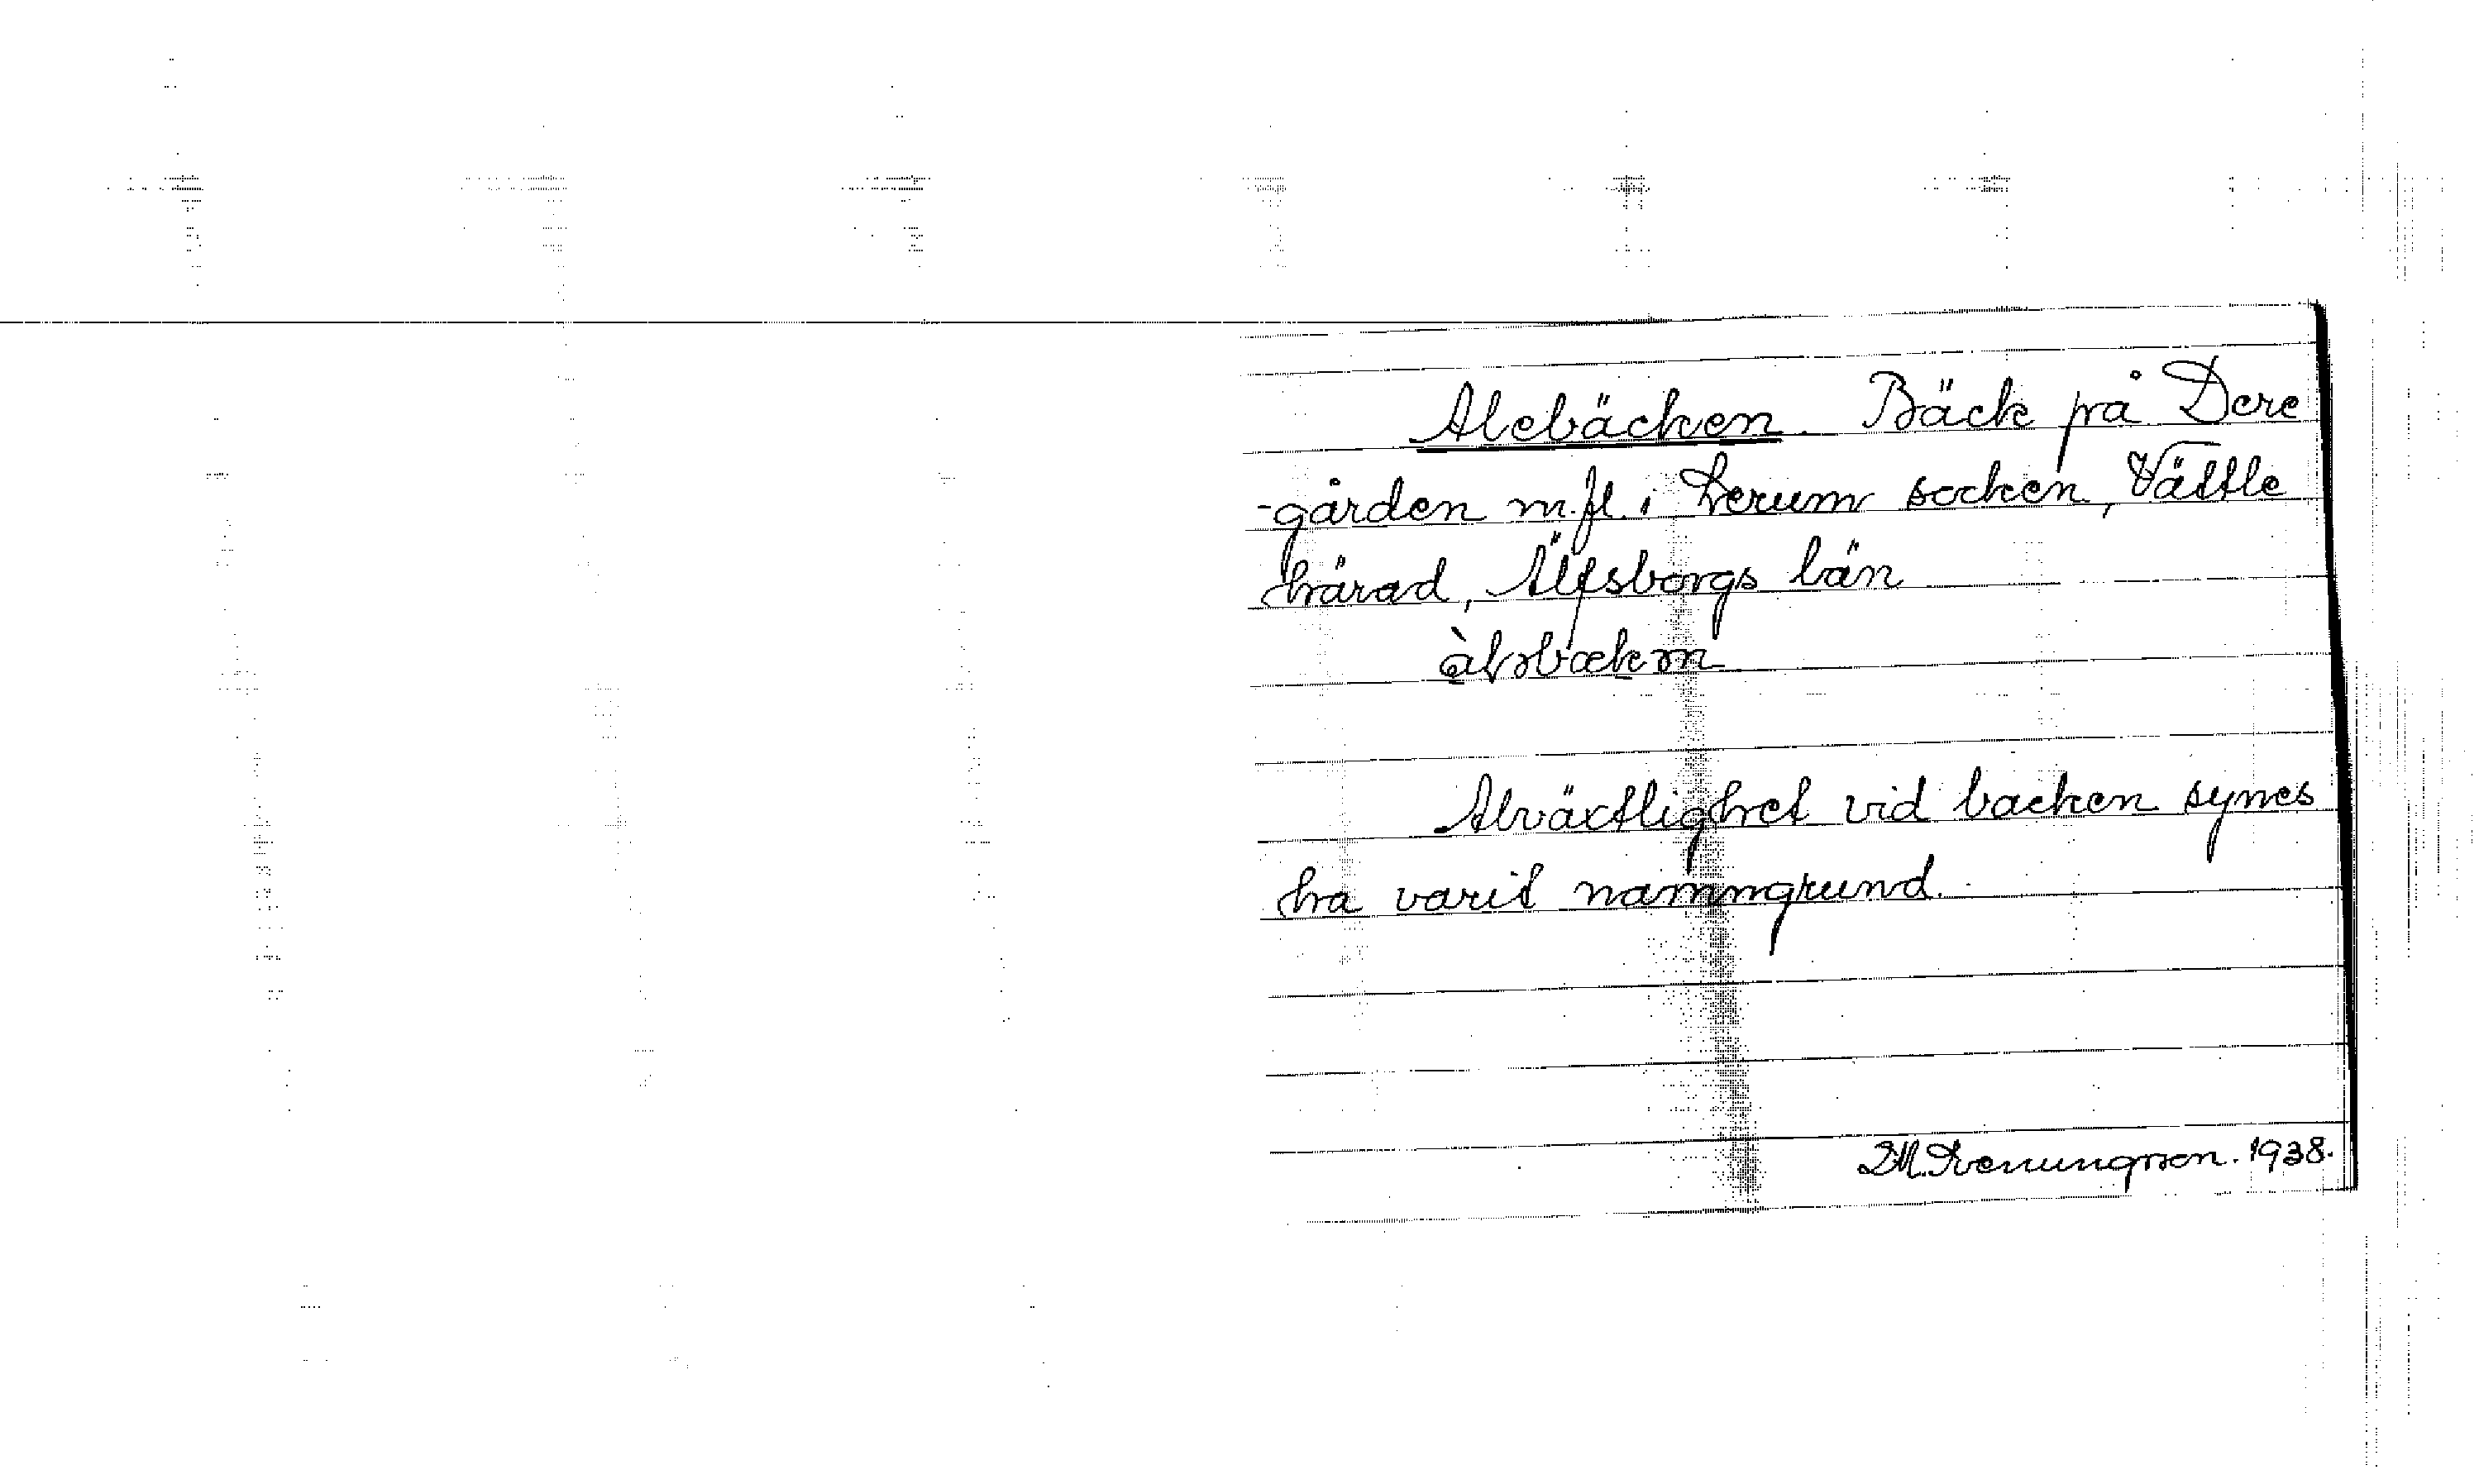 Alebäcken. Bäck på Dere
-gården m.fl. i Lerum socken, Vättle
härad, Älfsborgs län
Alväxtlighet vid bäcken synes
ha varit namngrund.
1938.